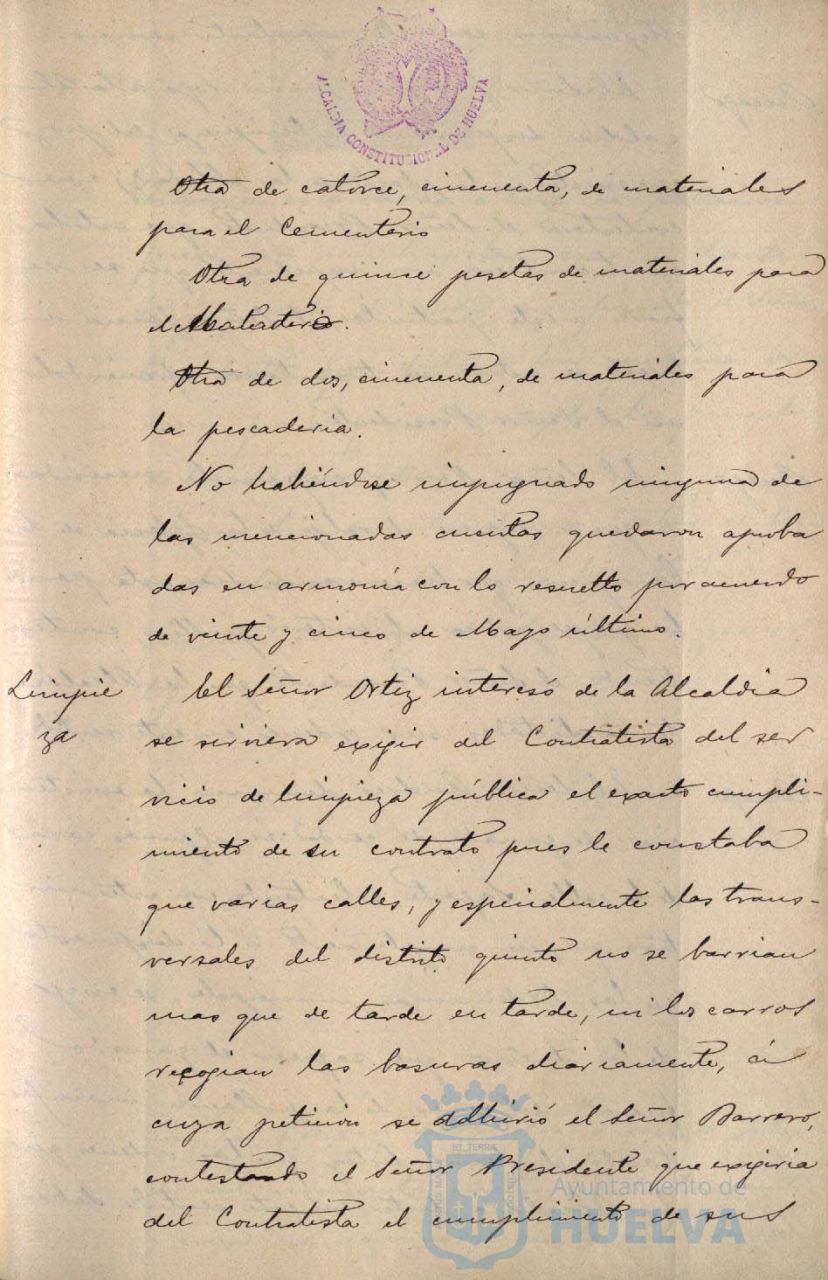 ALCALDIA CONSTITUCIONAL DE HUELVA
Otra de catorce, cincuenta, de materiales
para el Cementerio
Otra de quince pesetas de materiales para
el Matadero.
Otra de dos, cincuenta, de materiales para
la pescaderia.
No habiéndose impugnado ninguna de
las mencionadas cuentas quedaron aproba
das en armonía con lo resuelto por acuerdo
de veinte y cinco de Mayo último.
Limpie
za
El Señor Ortiz interesó de la Alcaldia
se sirviera exigir del Contratista del ser
vicio de limpieza pública el exacto cumpli-
miento de su contrato pues le constaba
que varias calles, y especialmente las trans-
versales del distrito quinto no se barrian
mas que de tarde en tarde, ni los carros
recogian las basuras diariamente, á
cuya peticion se adhirió el Señor Barrero,
contestando el Señor Presidente que exigiria
del Contratista el cumplimiento de sus
Ayuntamiento de
HUELVA